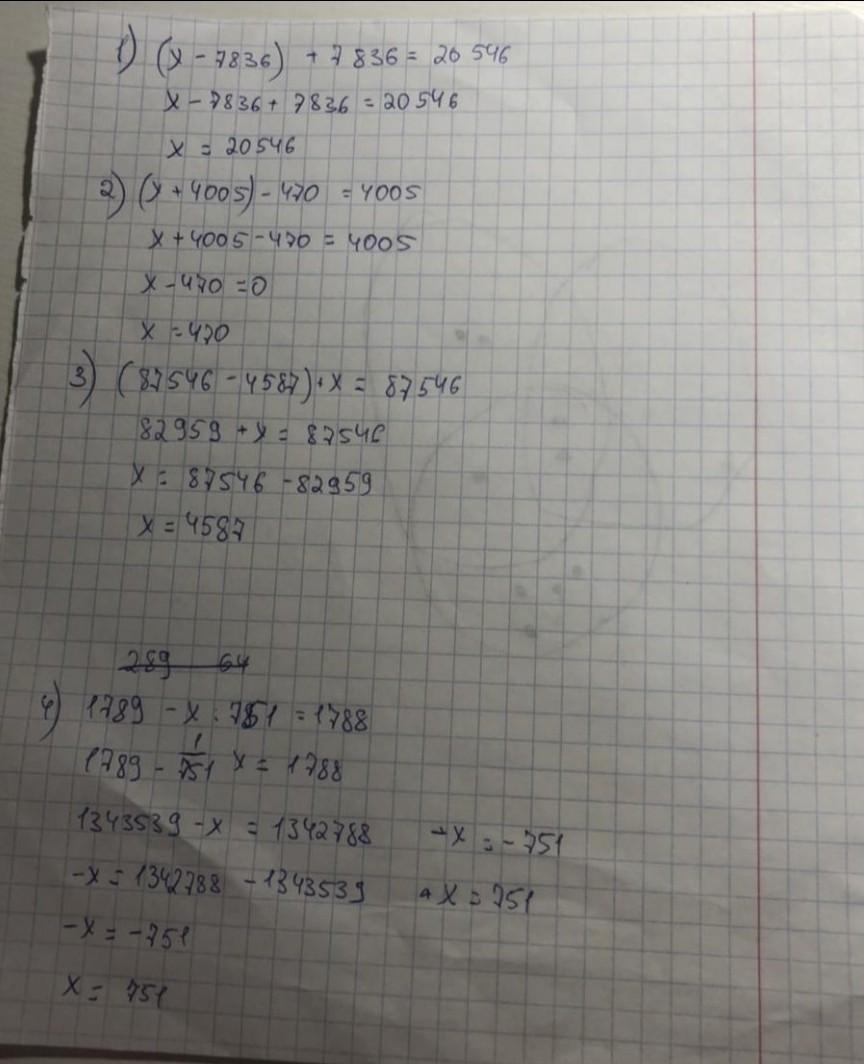 1) (x - 7836) + 7836 = 20546
x - 7836 + 7836 = 20546
x = 20546
2) (x + 4005) - 470 = 4005
x + 4005 - 470 = 4005
x - 470 = 0
x = 470
3) (87546 - 4587) + x = 87546
82959 + x = 87546
x = 87546 - 82959
x = 4587
289 64
4) 1789 - x : 751 = 1788
1789 - 1/751 x = 1788
1343539 - x = 1342788
-x = 1342788 - 1343539
-x = -751
x = 751
-x = -751
x = 751